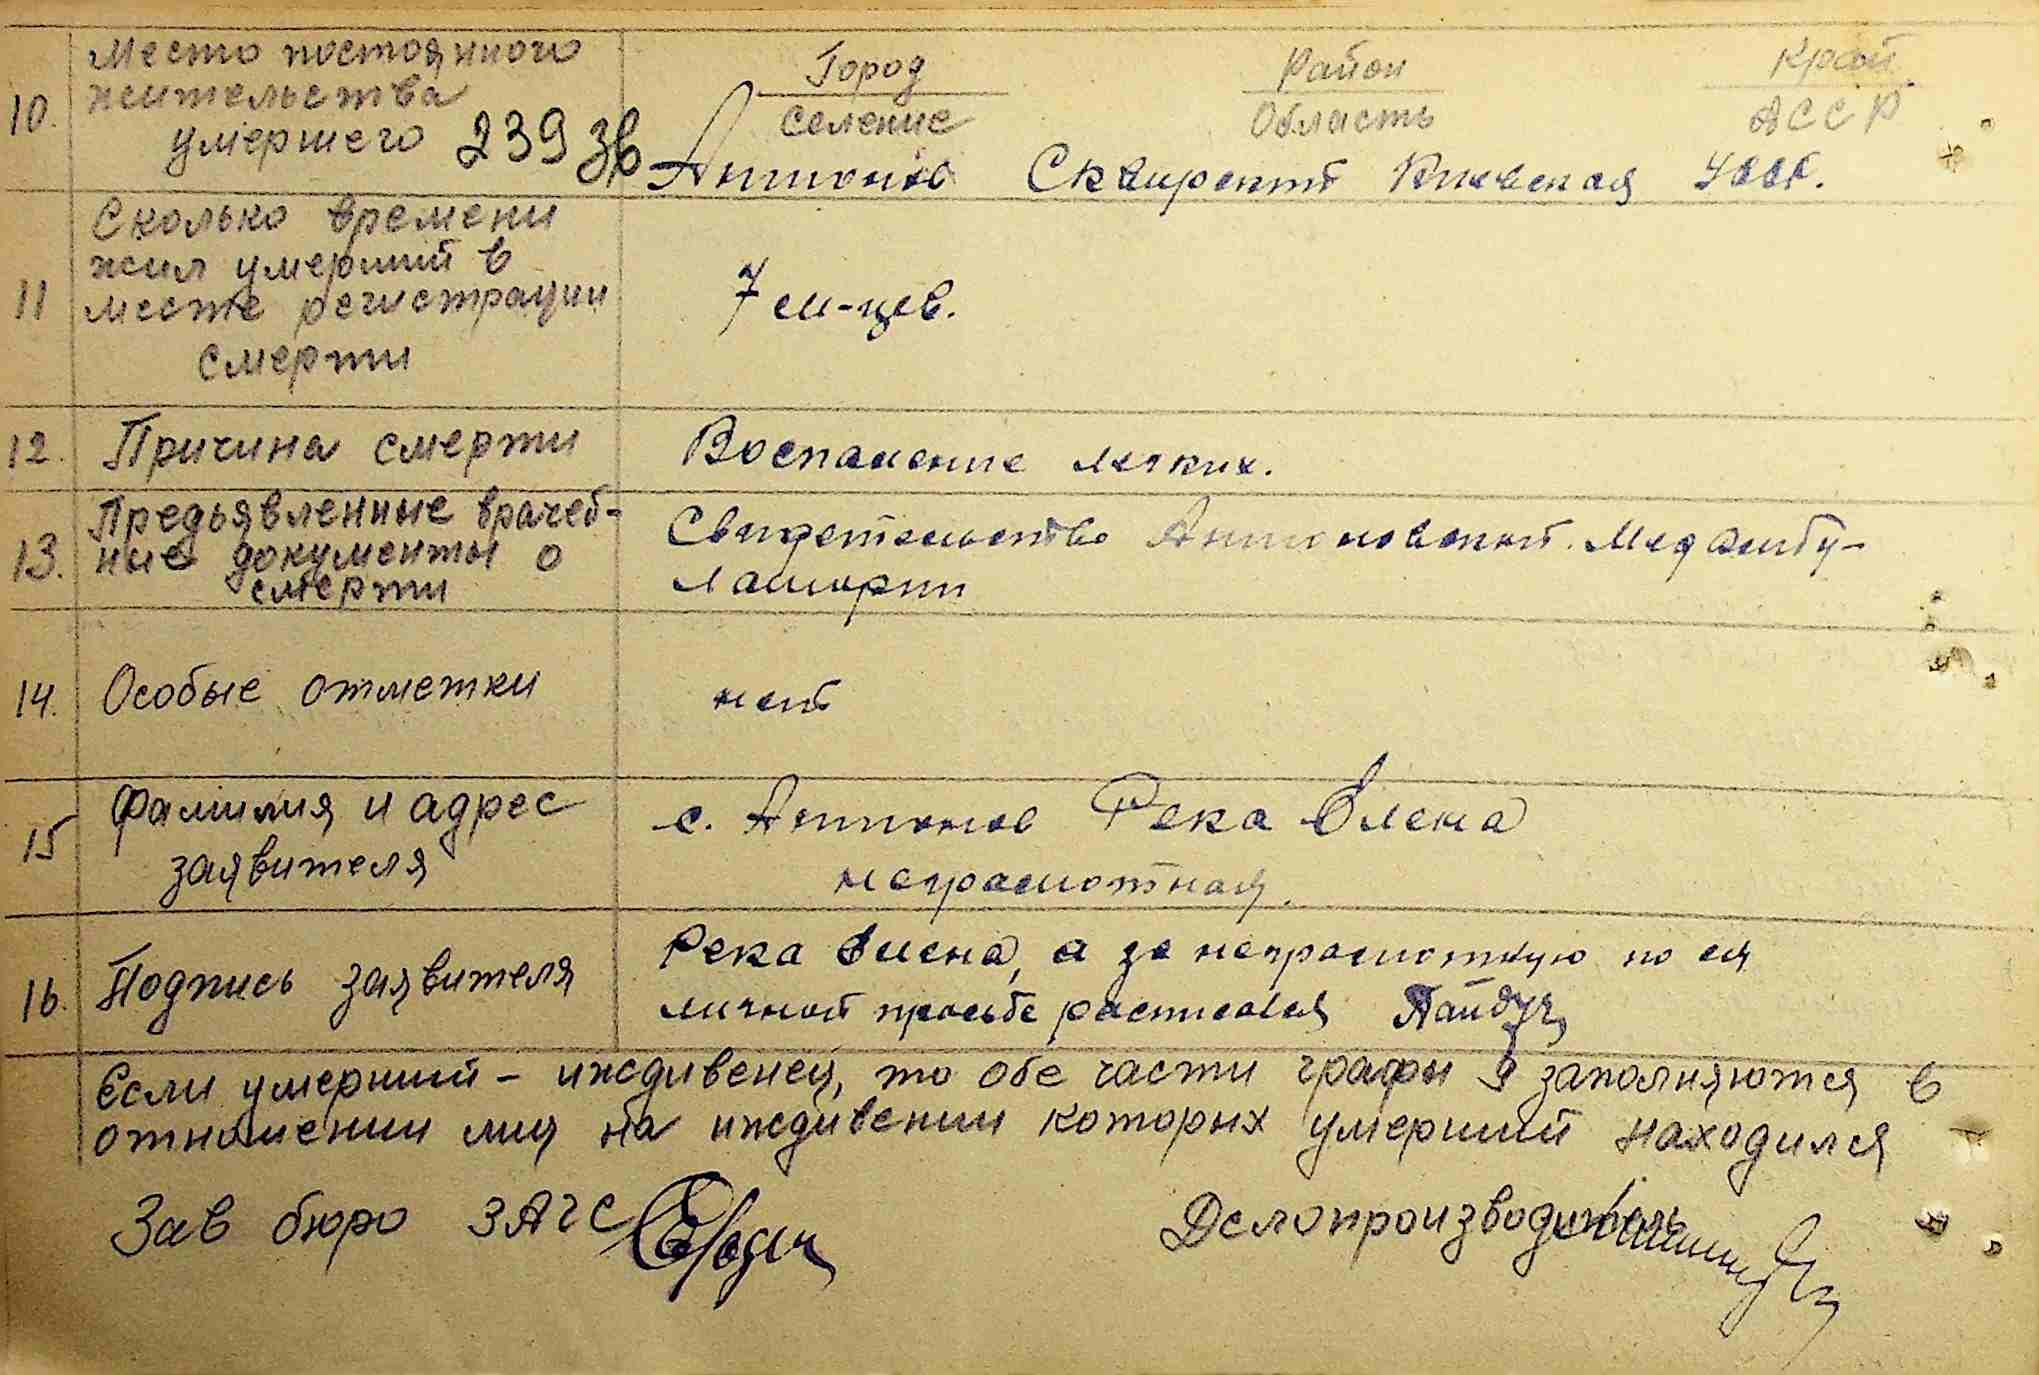 10. Место постоянного
жительства
умершего 239 зв
Город Район Край
Селение Область АССР
Антонов Сквирский Киевская УССР.
11 Сколько времени
жил умерший в
месте регистрации
смерти
7 м-цев.
12. Причина смерти Воспаление легких.
13. Предъявленные врачеб-
ные документы о
смерти
Свидетельство Антоновской Мед Амбу-
латории
14. Особые отметки нет
15 Фамилия и адрес
заявителя
с. Антонов Река Олена
неграмотная.
16. Подпись заявителя
Река Олена, а за неграмотную по ея
личной просьбе расписался
Если умерший - иждивенец, то обе части графы 9 заполняются в
отношении лиц на иждивении которых умерший находился
Зав бюро ЗАГС Делопроизводитель